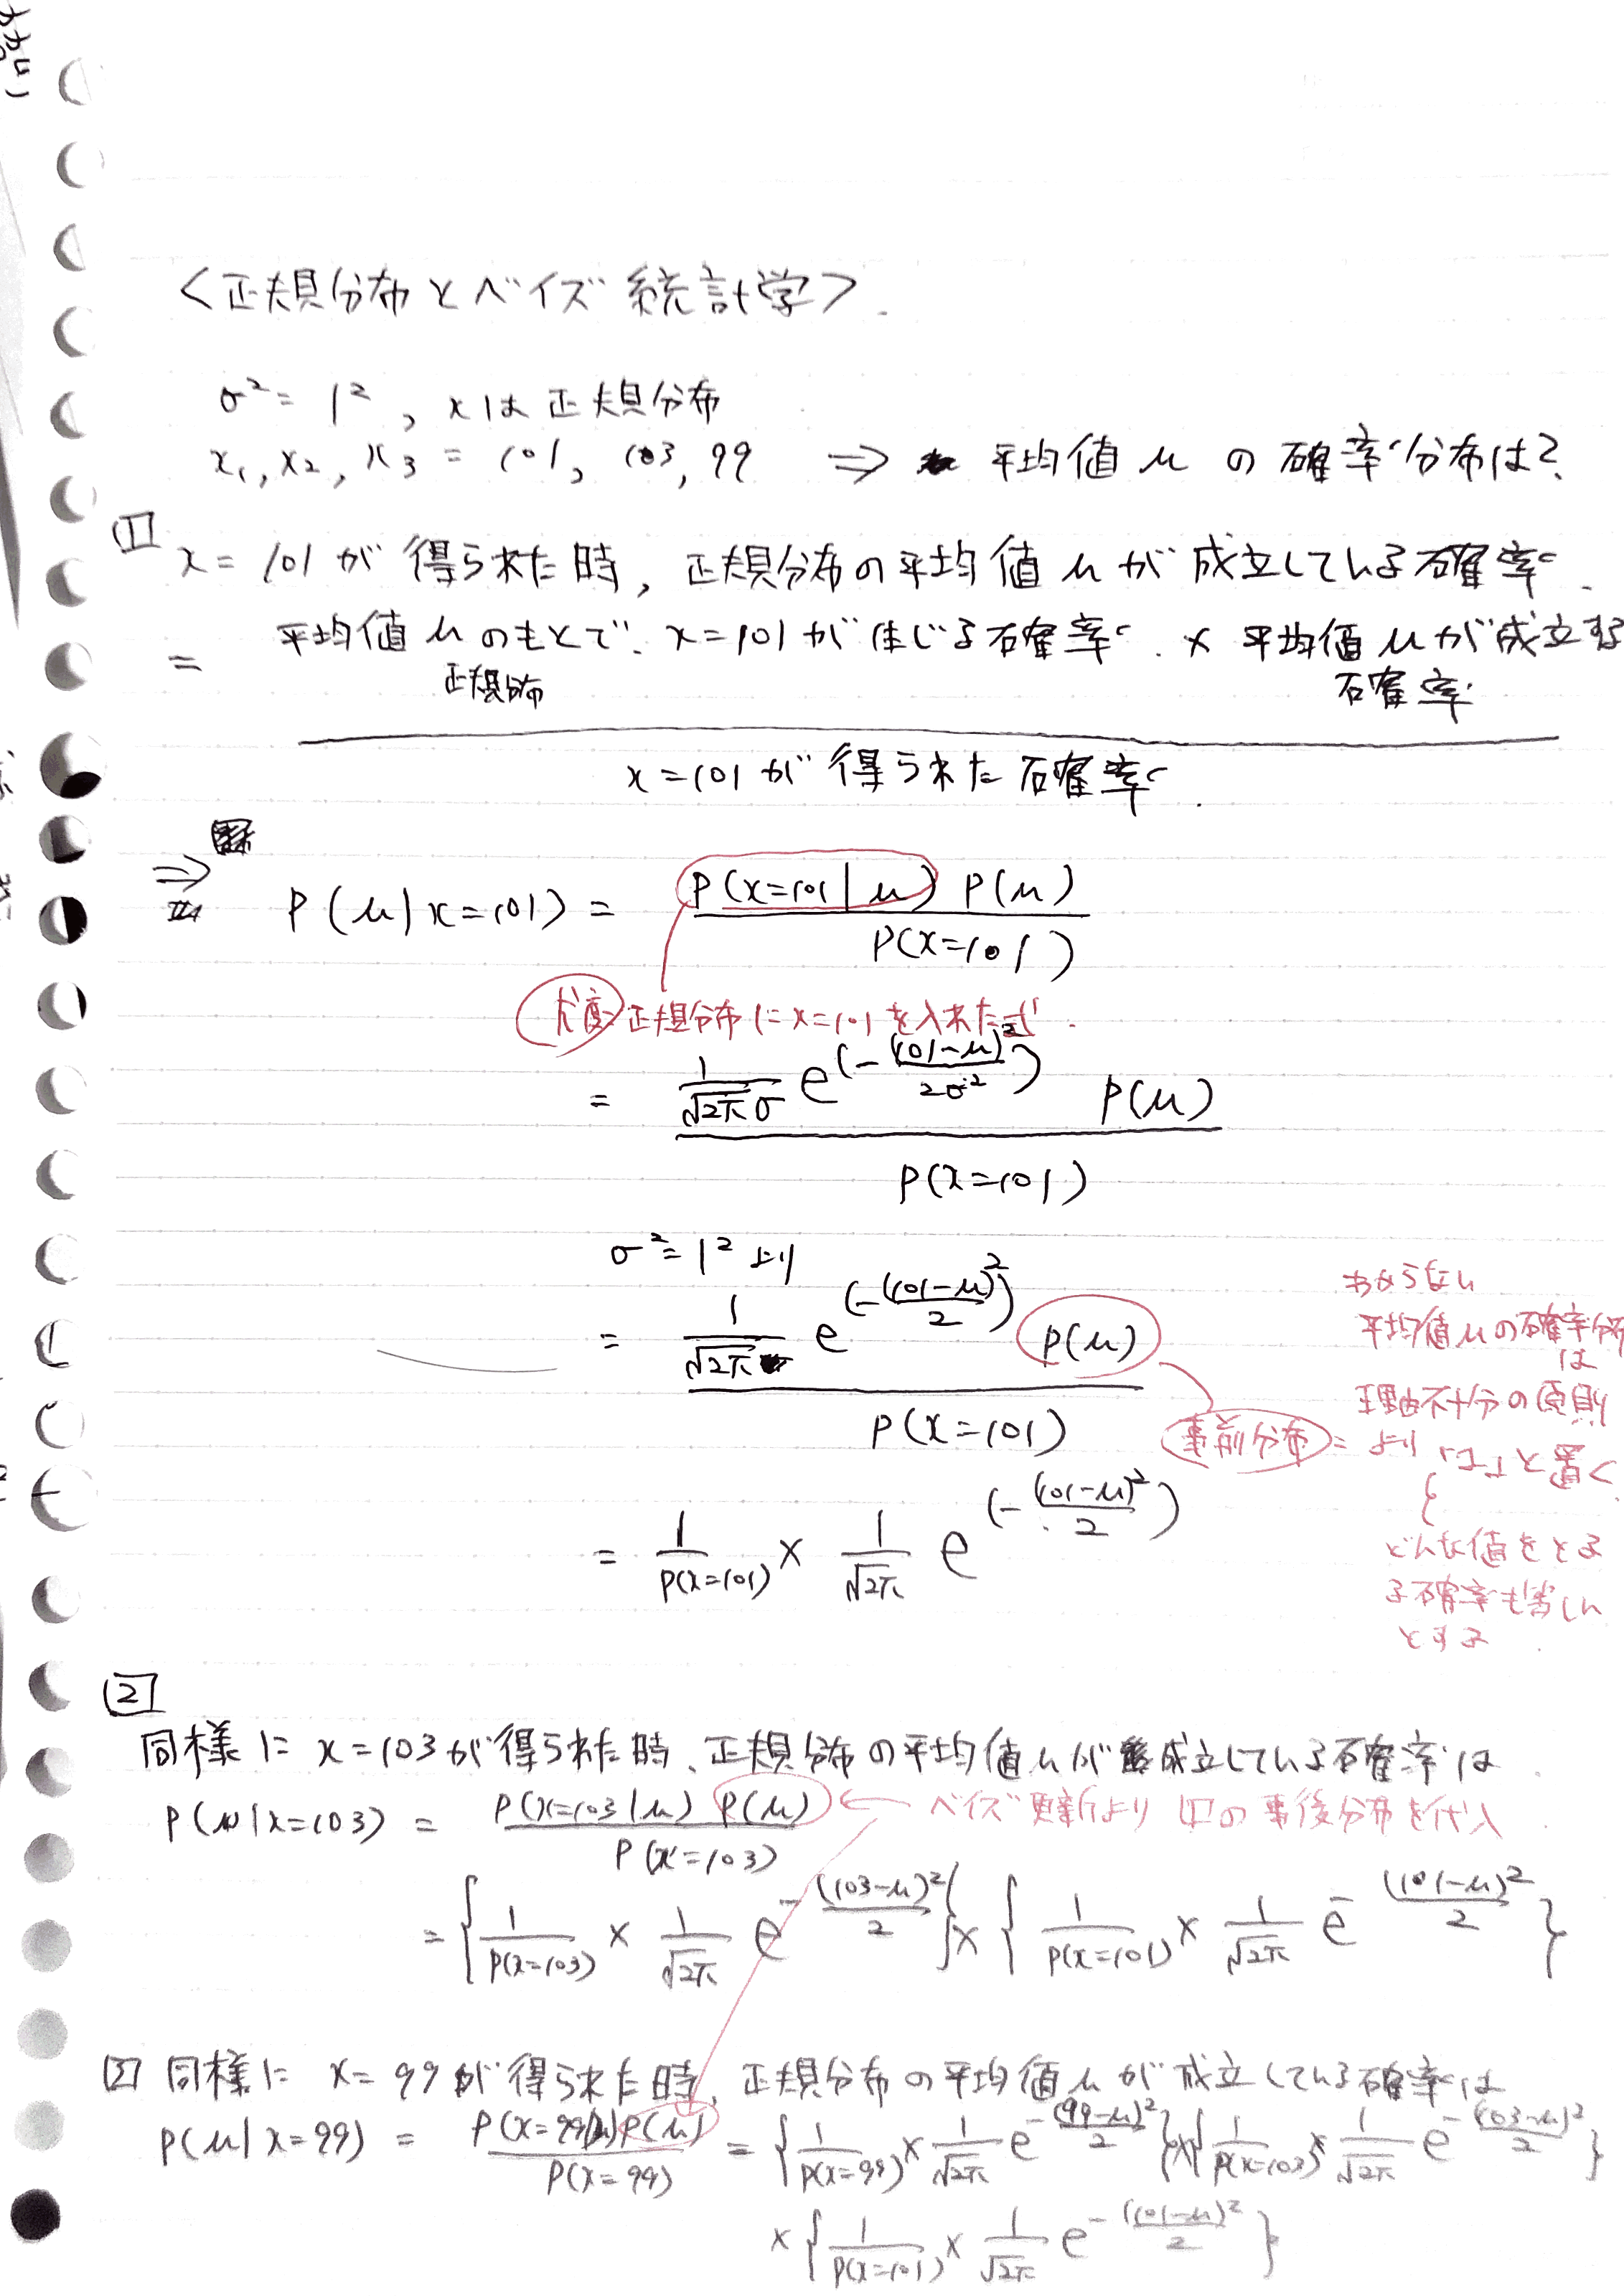 <正規分布とベイズ統計学>.
σ² = 1², xは正規分布
x₁, x₂, x₃ = 101, 103, 99 ⇒ 平均値μの確率分布は?
[1] x = 101が得られた時, 正規分布の平均値μが成立している確率.
= 平均値μのもとで x=101が生じる確率 × 平均値μが成立する確率
正規分布
x=101が得られた確率.
⇒ P(μ|x=101) = P(x=101|μ) P(μ) / P(x=101)
尤度=正規分布にx=101を入れた式.
= 1/√2πσ e^(-(101-μ)²/2σ²) P(μ) / P(x=101)
σ²=1²より
= 1/√2π e^(-(101-μ)²/2) P(μ) / P(x=101)
事前分布 =
わからない
平均値μの確率分布は
理由不十分の原則
より「1」と置く.
どんな値をとる
る確率も等しい
とする
= 1/P(x=101) × 1/√2π e^(-(101-μ)²/2)
[2]
同様に x=103が得られた時、正規分布の平均値μが成立している確率は
P(μ|x=103) = P(x=103|μ) P(μ) / P(x=103) ← ベイズ更新より [1]の事後分布を代入
= {1/P(x=103) × 1/√2π e^-(103-μ)²/2} × {1/P(x=101) × 1/√2π e^-(101-μ)²/2}
[3] 同様に x=99が得られた時, 正規分布の平均値μが成立している確率は
P(μ|x=99) = P(x=99|μ)P(μ) / P(x=99) = {1/P(x=99) × 1/√2π e^-(99-μ)²/2} × {1/P(x=103) × 1/√2π e^-(103-μ)²/2}
× {1/P(x=101) × 1/√2π e^-(101-μ)²/2}